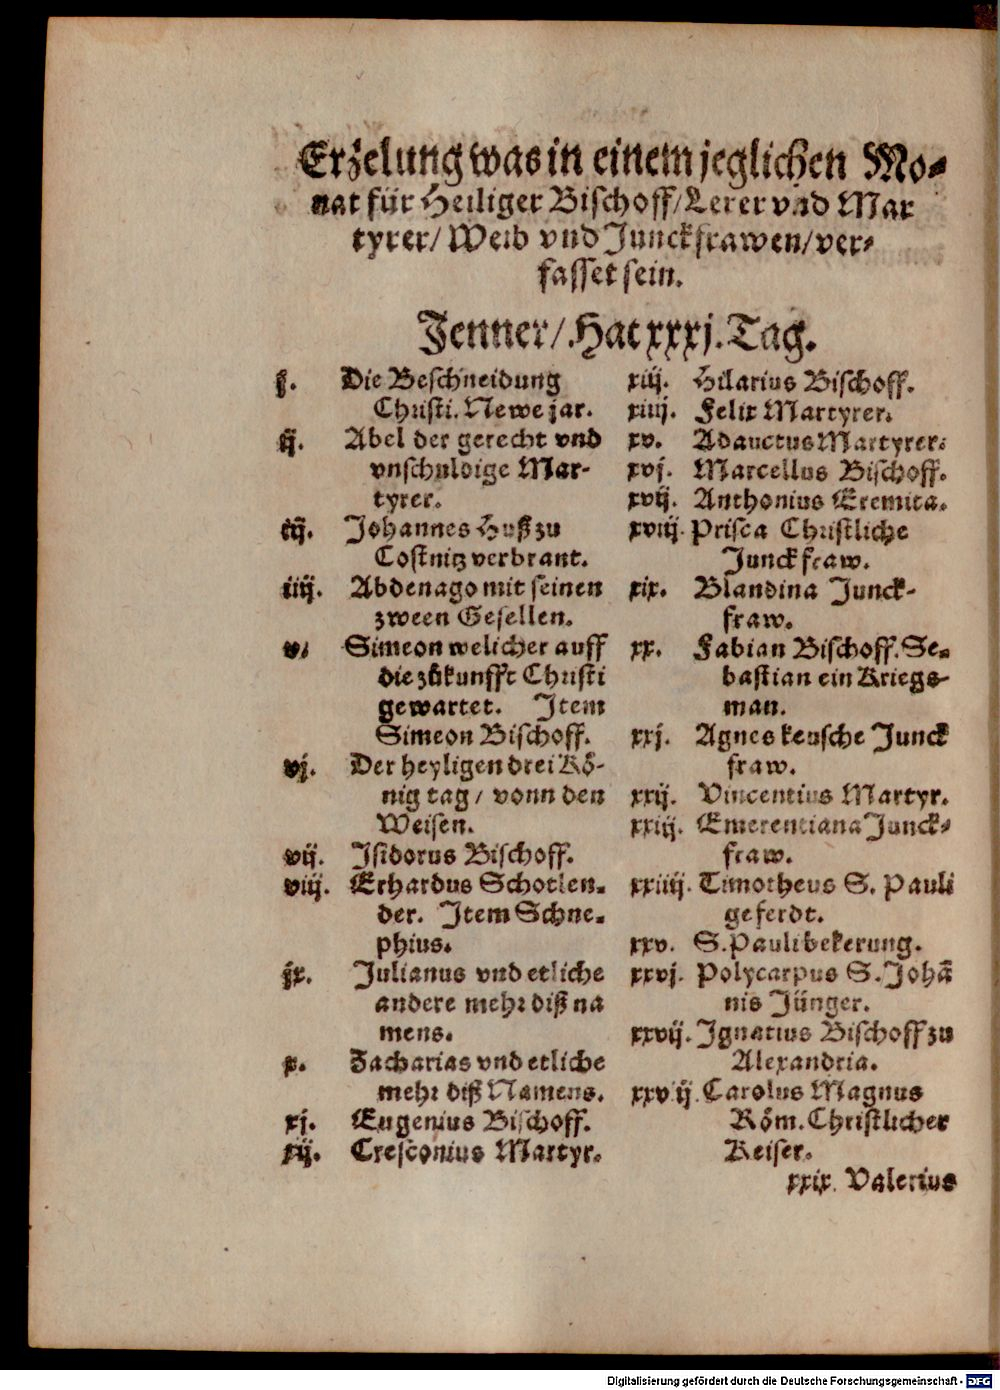 Erzelung was in einem jeglichen Mo-
nat für Heiliger Bischoff/ Lerer vnd Mar
tyrer/ Weib vnd Junckfrawen/ ver-
fasset sein.
Jenner/ Hat xxxj. Tag.
j. Die Beschneidung
Christi. Newe jar.
ij. Abel der gerecht vnd
vnschuldige Mar-
tyrer.
iij. Johannes Huß zu
Costnitz verbrant.
iiij. Abdenago mit seinen
zween Gesellen.
v. Simeon welicher auff
die zůkunfft Christi
gewartet. Item
Simeon Bischoff.
vj. Der heyligen drei Kö-
nig tag/ vonn den
Weisen.
vij. Isidorus Bischoff.
viij. Erhardus Schotlen-
der. Item Schne-
phius.
jx. Julianus vnd etliche
andere mehr diß na
mens.
x. Zacharias vnd etliche
mehr diß Namens.
xj. Eugenius Bischoff.
xij. Cresconius Martyr.
xiij. Hilarius Bischoff.
xiiij. Felix Martyrer.
xv. Adauctus Martyrer.
xvj. Marcellus Bischoff.
xvij. Anthonius Eremita.
xviij. Prisca Christliche
Junckfraw.
xix. Blandina Junck-
fraw.
xx. Fabian Bischoff. Se-
bastian ein Kriegs-
man.
xxj. Agnes keusche Junck
fraw.
xxij. Vincentius Martyr.
xxiij. Emerentiana Junck-
fraw.
xxiiij. Timotheus S. Pauli
geferdt.
xxv. S. Pauli bekerung.
xxvj. Polycarpus S. Johã
nis Jünger.
xxvij. Ignatius Bischoff zu
Alexandria.
xxviij. Carolus Magnus
Röm. Christlicher
Keiser.
xxix. Valerius
Digitalisierung gefördert durch die Deutsche Forschungsgemeinschaft - DFG